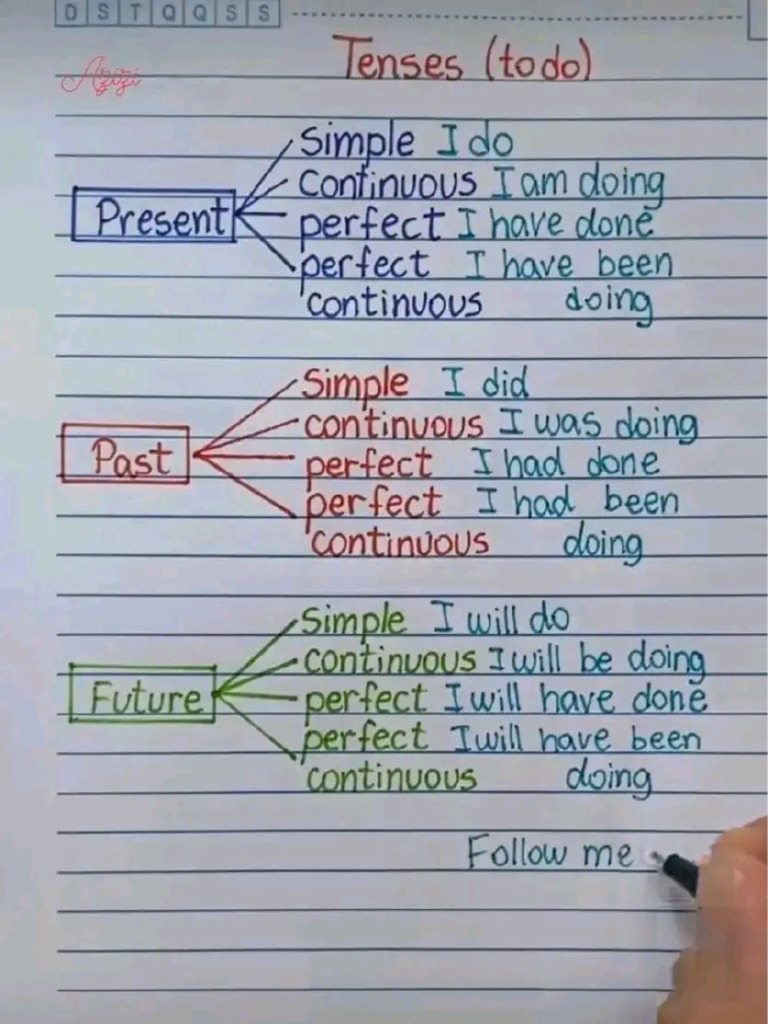 D S T Q Q S S
Azizi
Tenses (to do)
Simple I do
Continuous I am doing
Present
perfect I have done
perfect I have been
continuous doing
Simple I did
continuous I was doing
Past
perfect I had done
perfect I had been
continuous doing
Simple I will do
continuous I will be doing
Future
perfect I will have done
perfect I will have been
continuous doing
Follow me